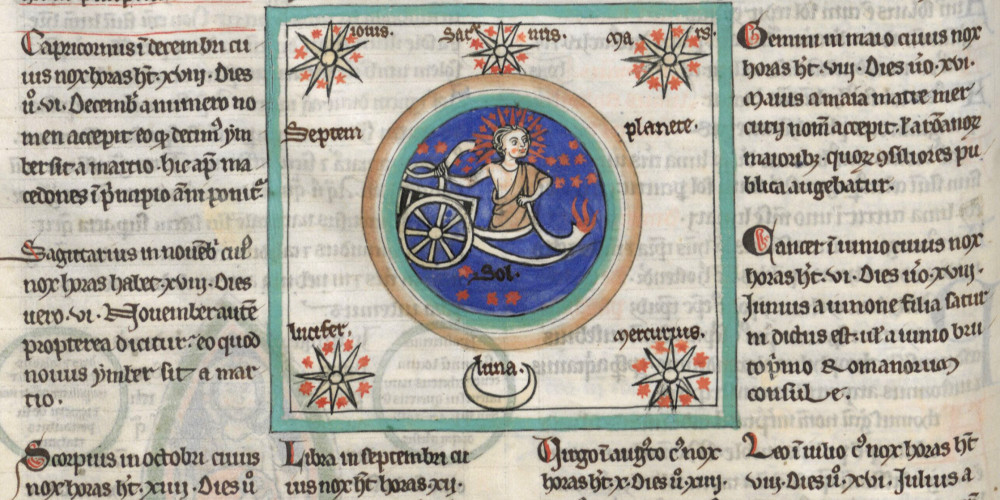 Capricornus ī decembri cu
ius nox horas hr̄. xviij. Dies
ů. vi. Decemb̄ a numero no
men accepit eo ꝙ decim⁹ ym
ber sit a marcio. hic ap̄ ma
cedones ī p̄ncipio an̄i ponit᷑
Sagittarius in nouēb̄ cui⁹
nox horas habet xviij. Dies
uero. vi. Nouember autē
propterea dicitur. eo quod
nouus ymber sit a mar
cio.
Scorpius in octobri cuius
nox horas hr̄. xiiij. Dies ů
iouis.
Sat̄ nus.
Ma rs.
Septem planete.
Sol.
lucifer.
luna.
mercurius.
Libra in septembri cu
ius nox hr̄ horas. xij.
Virgo ī augt̄o c⁹ nox
horas hr̄. x. Dies ů. xiiij.
Gemini in maio cuius nox
horas hr̄. viij. Dies ůo. xvi.
Maius a maia matre mer
curij nom̄ accepit. ł a
maioribȝ. quoȝ ꝯsilio res pu
blica augebatur.
Cancer ī iunio cuius nox
horas hr̄. vi. Dies ůo. xviij.
Iunius a iunone filia satur
ni dictus est. uł a iunio bru
to p̄mo Romanorum
consule.
Leo ī iulio c⁹ nox horas hr̄
viij. Dies ů. xvi. Iulius a